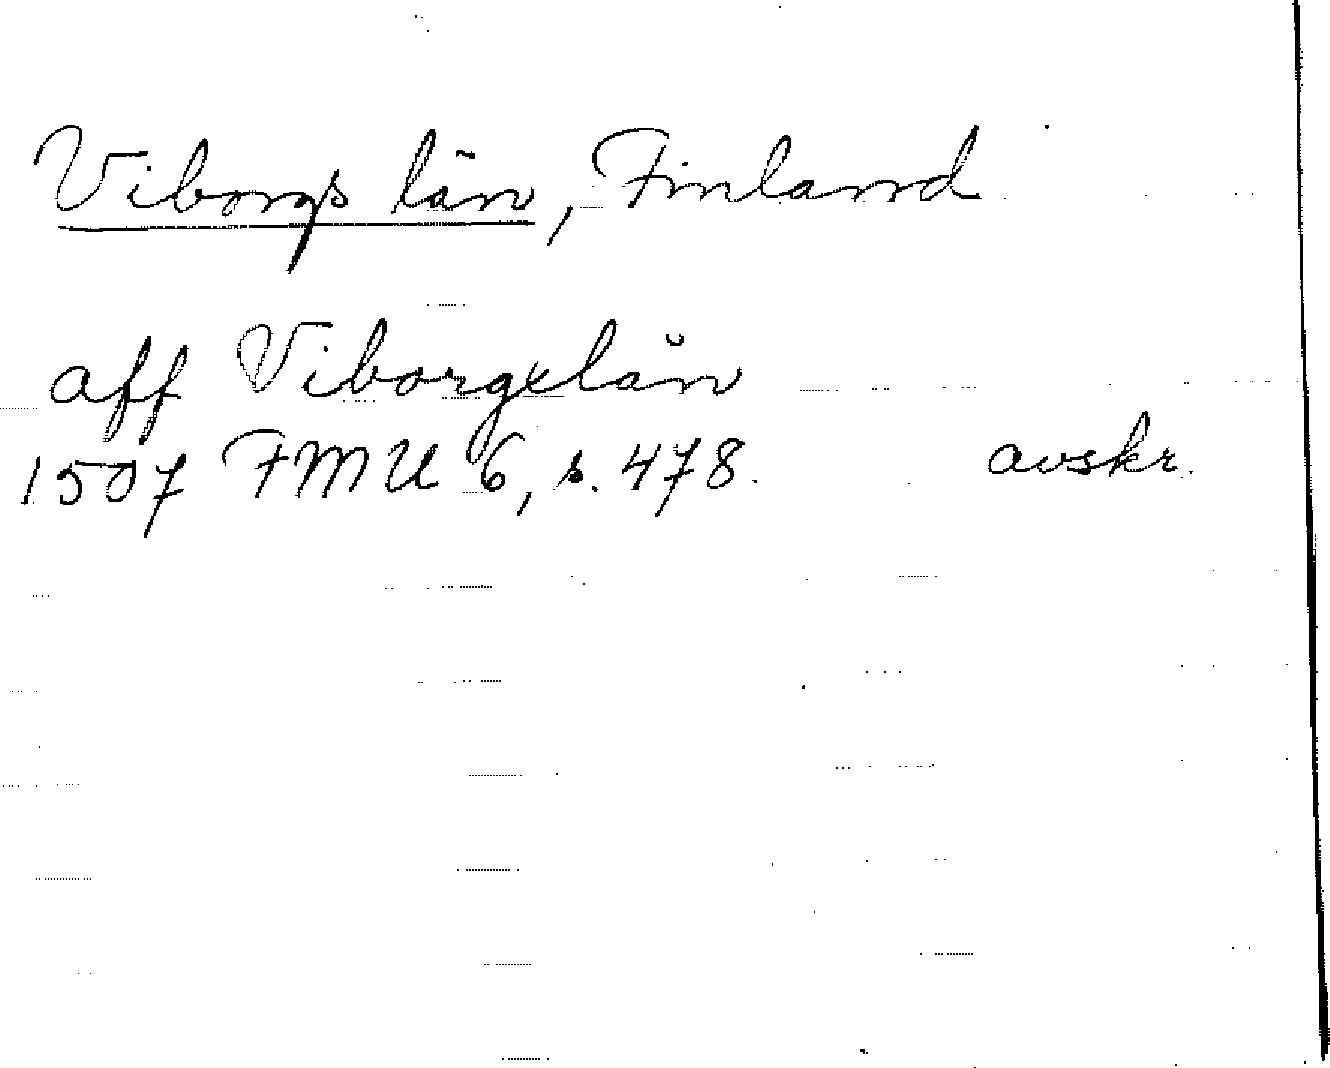 Viborgs län, Finland
aff Viborgxlän
1507 FMU 6, s. 478. avskr.